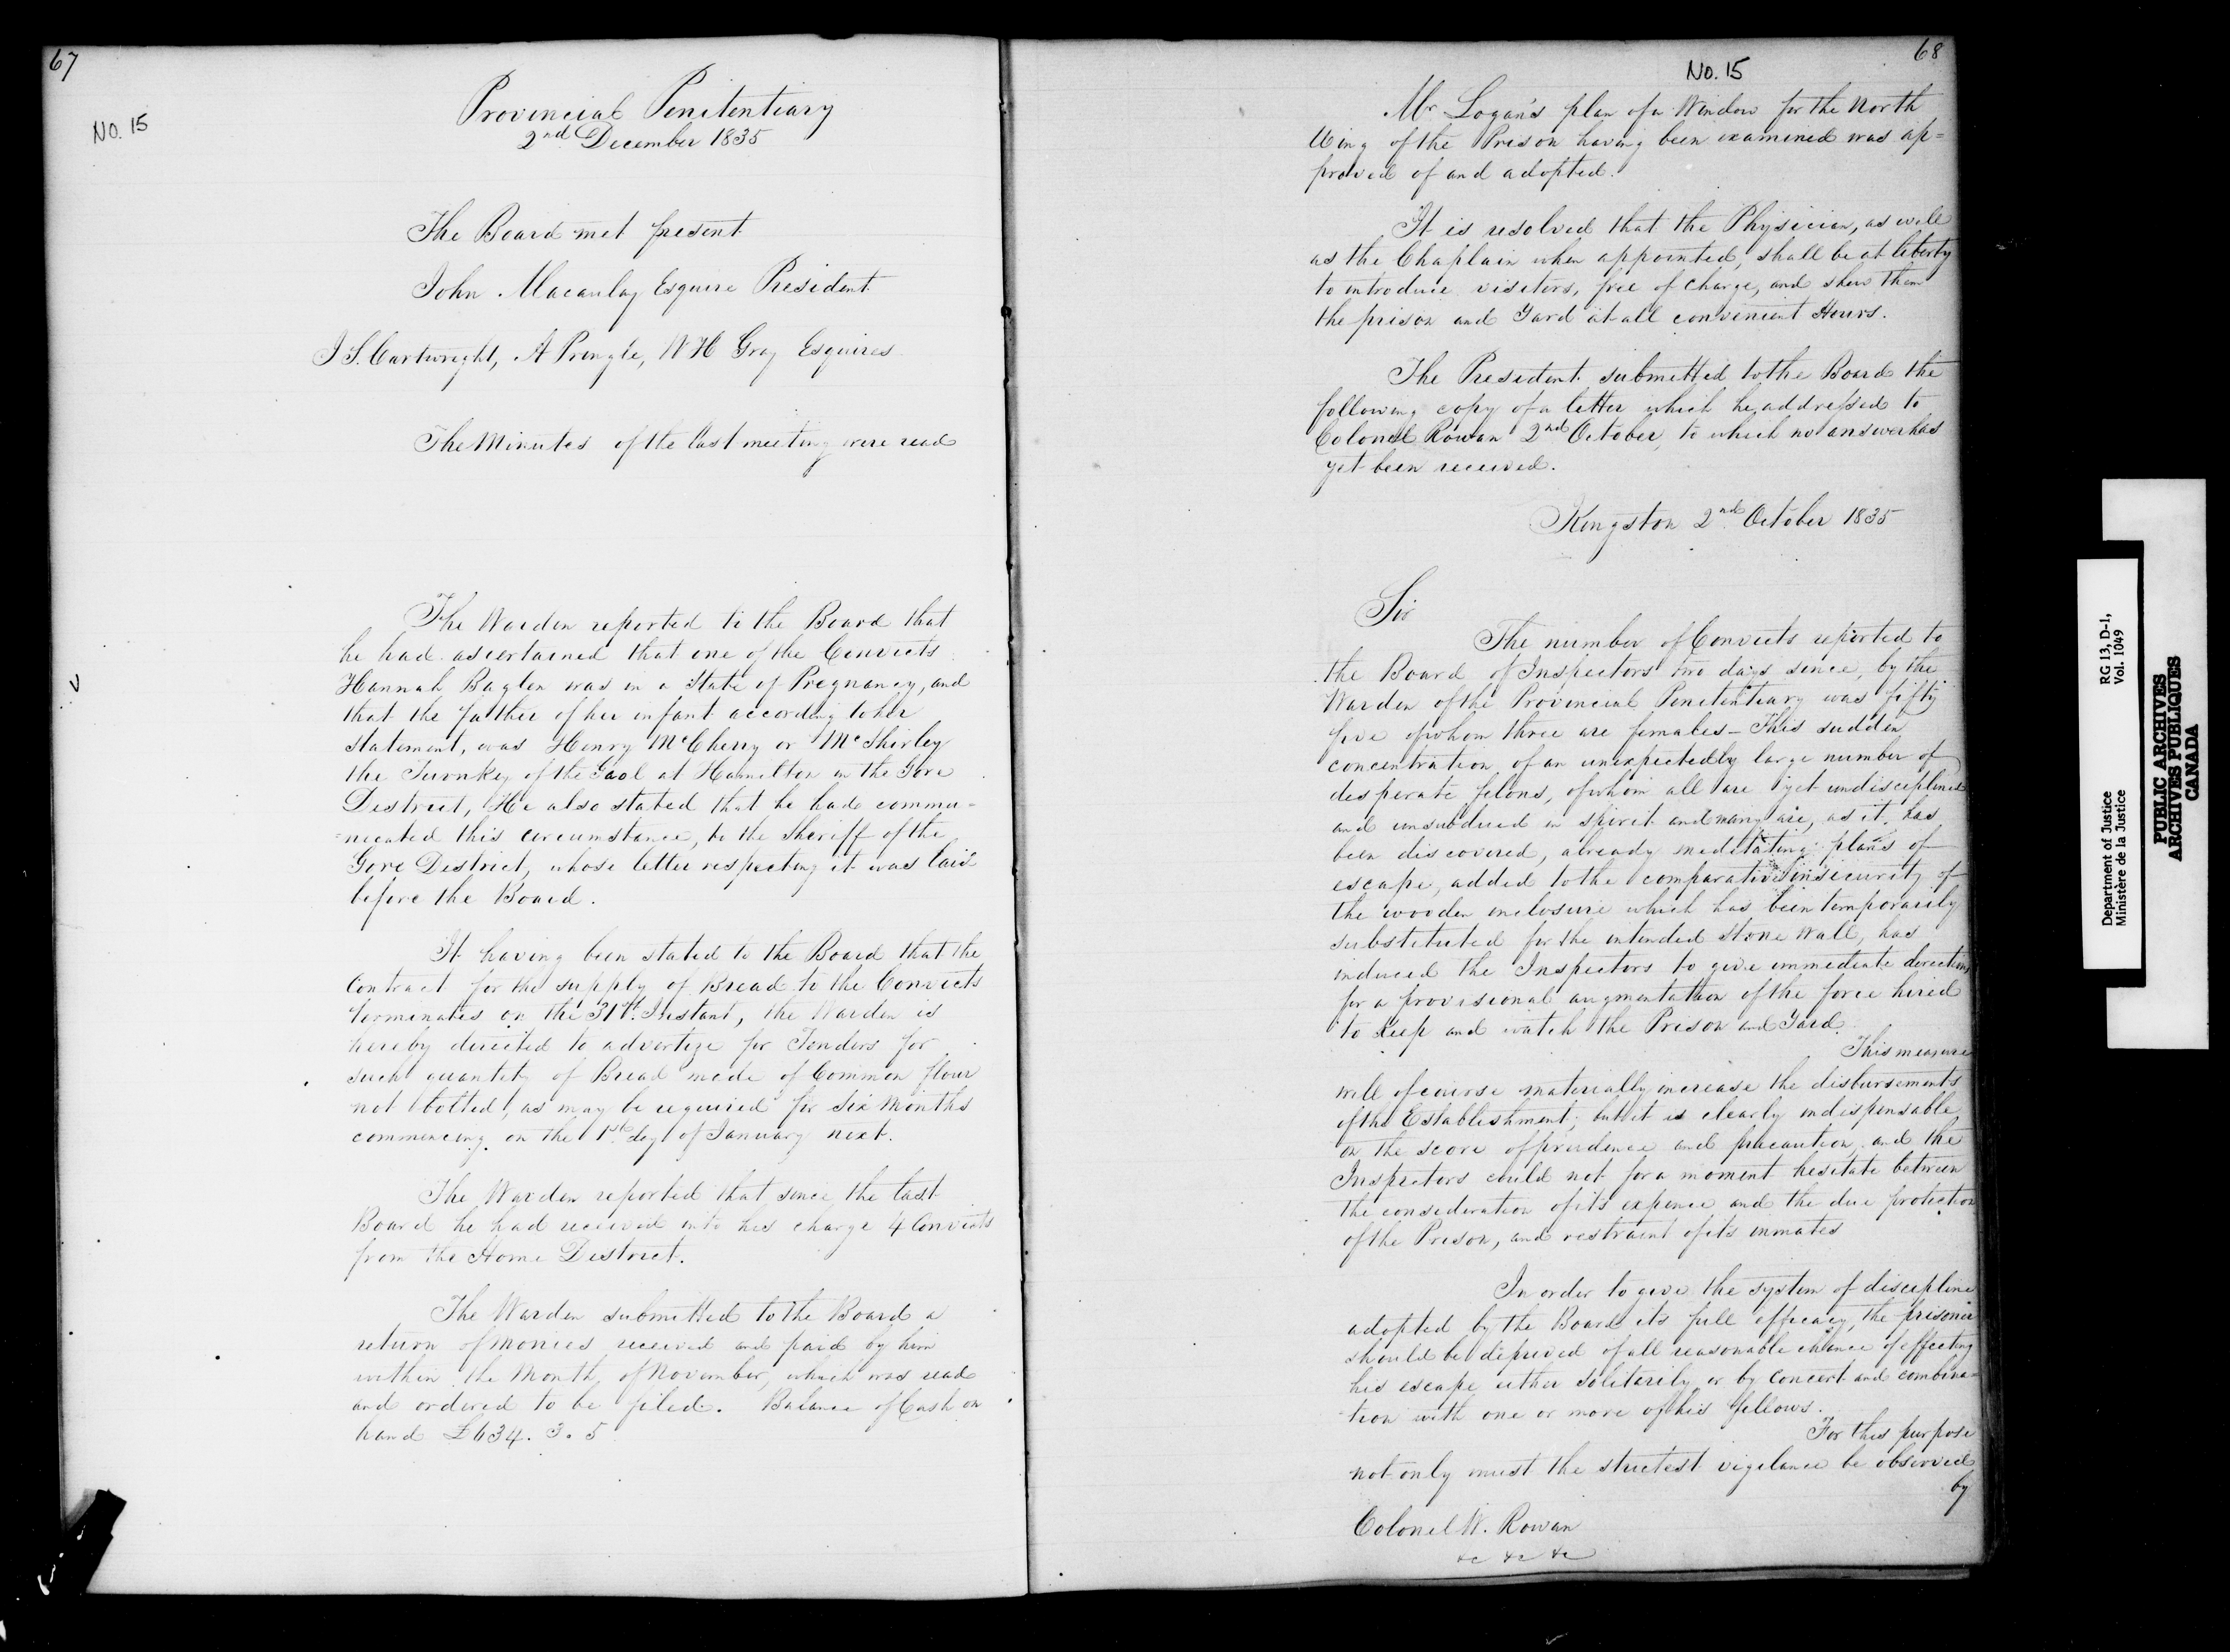 67
No. 15
Provincial Penitentiary
2nd December 1835
The Board met present
John Macaulay Esquire President
J S. Cartwright, A Pringle, W H Gray Esquires
The Minutes of the last meeting were read
The Warden reported to the Board that
he had ascertained that one of the Convicts
Hannah Baglen was in a State of Pregnancy, and
that the father of her infant according to her
statement, was Henry McCherry or McShirley
the Turnkey of the Gaol at Hamilton in the Gore
District, He also stated that he had commu-
=nicated this circumstance, to the Sheriff of the
Gore District, whose letter respecting it was laid
before the Board.
It having been stated to the Board that the
Contract for the supply of Bread to the Convicts
terminates on the 31st. Instant, the Warden is
hereby directed to advertize for Tenders for
such quantity of Bread made of Common flour
not bolted, as may be required for Six Months
commencing on the 1st day of January next.
The Warden reported that since the last
Board he had received into his charge 4 Convicts
from the Home District.
The Warden submitted to the Board a
return of monies received and paid by him
within the Month of November, which was read
and ordered to be filed. Balance of Cash on
hand £634. 3. 5
68
No. 15
Mr Logan's plan of a Window for the North
Wing of the Prison having been examined was ap=
proved of and adopted.
It is resolved that the Physician, as well
as the Chaplain when appointed, shall be at liberty
to introduce visitors, free of charge, and shew them
the prison and Yard at all convenient Hours.
The President submitted to the Board the
following copy of a letter which he addressed to
Colonel Rowan 2nd October, to which no answer has
yet been received.
Kingston 2nd October 1835
Sir
The number of Convicts reported to
the Board of Inspectors two days since, by the
Warden of the Provincial Penitentiary was fifty
five of whom three are females – This sudden
concentration of an unexpectedly large number of
desperate felons, of whom all are yet undisciplined
and unsubdued in spirit and many are, as it has
been discovered, already meditating plans of
escape, added to the comparative insecurity of
the wooden inclosure which has been temporarily
substituted for the intended Stone Wall, has
induced the Inspectors to give immediate directions
for a provisional augmentation of the force hired
to keep and watch the Prison and Yard.
This measure
will of course materially increase the disbursements
of the Establishment; but it is clearly indispensable
on the score of prudence and precaution, and the
Inspectors could not for a moment hesitate between
the consideration of its expence and the due protection
of the Prison, and restraint of its inmates
In order to give the system of discipline
adopted by the Board its full efficacy, the prisoner
should be deprived of all reasonable chance of effecting
his escape either solitarily or by concert and combina=
tion with one or more of his fellows.
For this purpose
not only must the strictest vigilance be observed
by
Colonel W. Rowan
&c &c &c
Department of Justice
Ministère de la Justice
RG 13, D-1,
Vol. 1049
PUBLIC ARCHIVES
ARCHIVES PUBLIQUES
CANADA